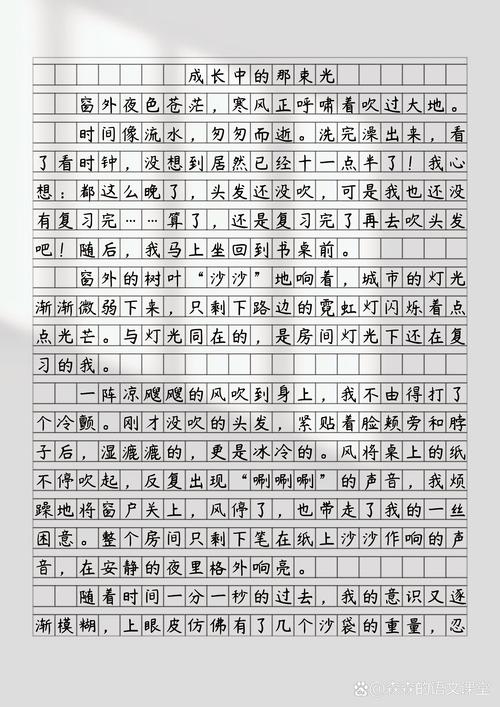 成长中的那束光
窗外夜色苍茫，寒风正呼啸着吹过大地。
时间像流水，匆匆而逝。洗完澡出来，看
了看时钟，没想到居然已经十一点半了！我心
想：都这么晚了，头发还没吹，可是我也还没
有复习完……算了，还是复习完了再去吹头发
吧！随后，我马上坐回到书桌前。
窗外的树叶“沙沙”地响着，城市的灯光
渐渐微弱下来，只剩下路边的霓虹灯闪烁着点
点光芒。与灯光同在的，是房间灯光下还在复
习的我。
一阵凉飕飕的风吹到身上，我不由得打了
个冷颤。刚才没吹的头发，紧贴着脸颊旁和脖
子后，湿漉漉的，更是冰冷的。风将桌上的纸
不停吹起，反复出现“唰唰唰”的声音，我烦
躁地将窗户关上，风停了，也带走了我的一丝
困意。整个房间只剩下笔在纸上沙沙作响的声
音，在安静的夜里格外响亮。
随着时间一分一秒的过去，我的意识又逐
渐模糊，上眼皮仿佛有了几个沙袋的重量，忍
@森森的语文课堂